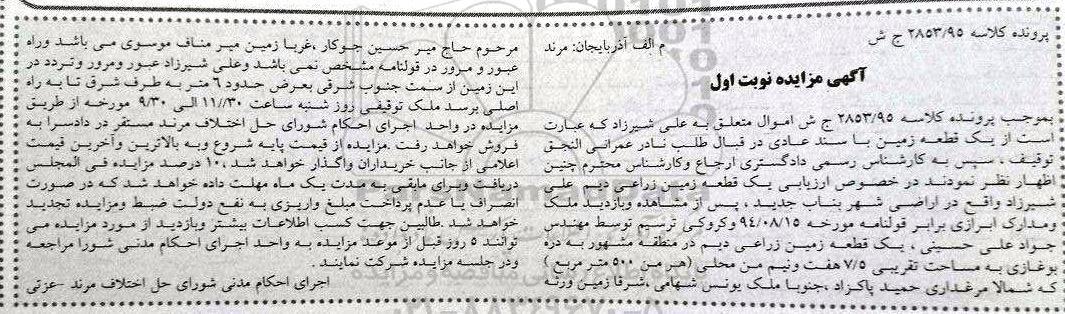 پرونده کلاسه ۲۸۵۳/۹۵ ج ش
م الف آذربایجان: مرند
آگهی مزایده نوبت اول
بموجب پرونده کلاسه ۲۸۵۳/۹۵ ج ش اموال متعلق به علی شیرزاد که عبارت
است از یک قطعه زمین با سند عادی در قبال طلب نادر عمرانی النجق
توقیف ، سپس به کارشناس رسمی دادگستری ارجاع وکارشناس محترم چنین
اظهار نظر نمودند در خصوص ارزیابی یک قطعه زمین زراعی دیم علی
شیرزاد واقع در اراضی شهر بناب جدید ، پس از مشاهده وبازدید ملک
ومدارک ابرازی برابر قولنامه مورخه ۹۴/۰۸/۱۵ وکروکی ترسیم توسط مهندس
جواد علی حسینی ، یک قطعه زمین زراعی دیم در منطقه مشهور به دره
بوغازی به مساحت تقریبی ۷/۵ هفت ونیم من محلی (هر من ۵۰۰ متر مربع )
که شمالا مرغداری حمید پاکزاد ،جنوبا ملک یونس شهامی ،شرقا زمین ورثه
مرحوم حاج میر حسین جوکار ،غربا زمین میر مناف موسوی می باشد وراه
عبور و مرور در قولنامه مشخص نمی باشد وعلی شیرزاد عبور ومرور وتردد در
این زمین از سمت جنوب شرقی بعرض حدود ۶ متر به طرف شرق تا به راه
اصلی برسد ملک توقیفی روز شنبه ساعت ۱۱/۳۰ الی ۹/۳۰ مورخه از طریق
مزایده در واحد اجرای احکام شورای حل اختلاف مرند مستقر در دادسرا به
فروش خواهد رفت .مزایده از قیمت پایه شروع وبه بالاترین وآخرین قیمت
اعلامی از جانب خریداران واگذار خواهد شد ،۱۰ درصد مزایده فی المجلس
دریافت وبرای مابقی به مدت یک ماه مهلت داده خواهد شد که در صورت
انصراف یا عدم پرداخت مبلغ واریزی به نفع دولت ضبط ومزایده تجدید
خواهد شد .طالبین جهت کسب اطلاعات بیشتر وبازدید از مورد مزایده می
توانند ۵ روز قبل از موعد مزایده به واحد اجرای احکام مدنی شورا مراجعه
ودر جلسه مزایده شرکت نمایند .
اجرای احکام مدنی شورای حل اختلاف مرند -عزتی